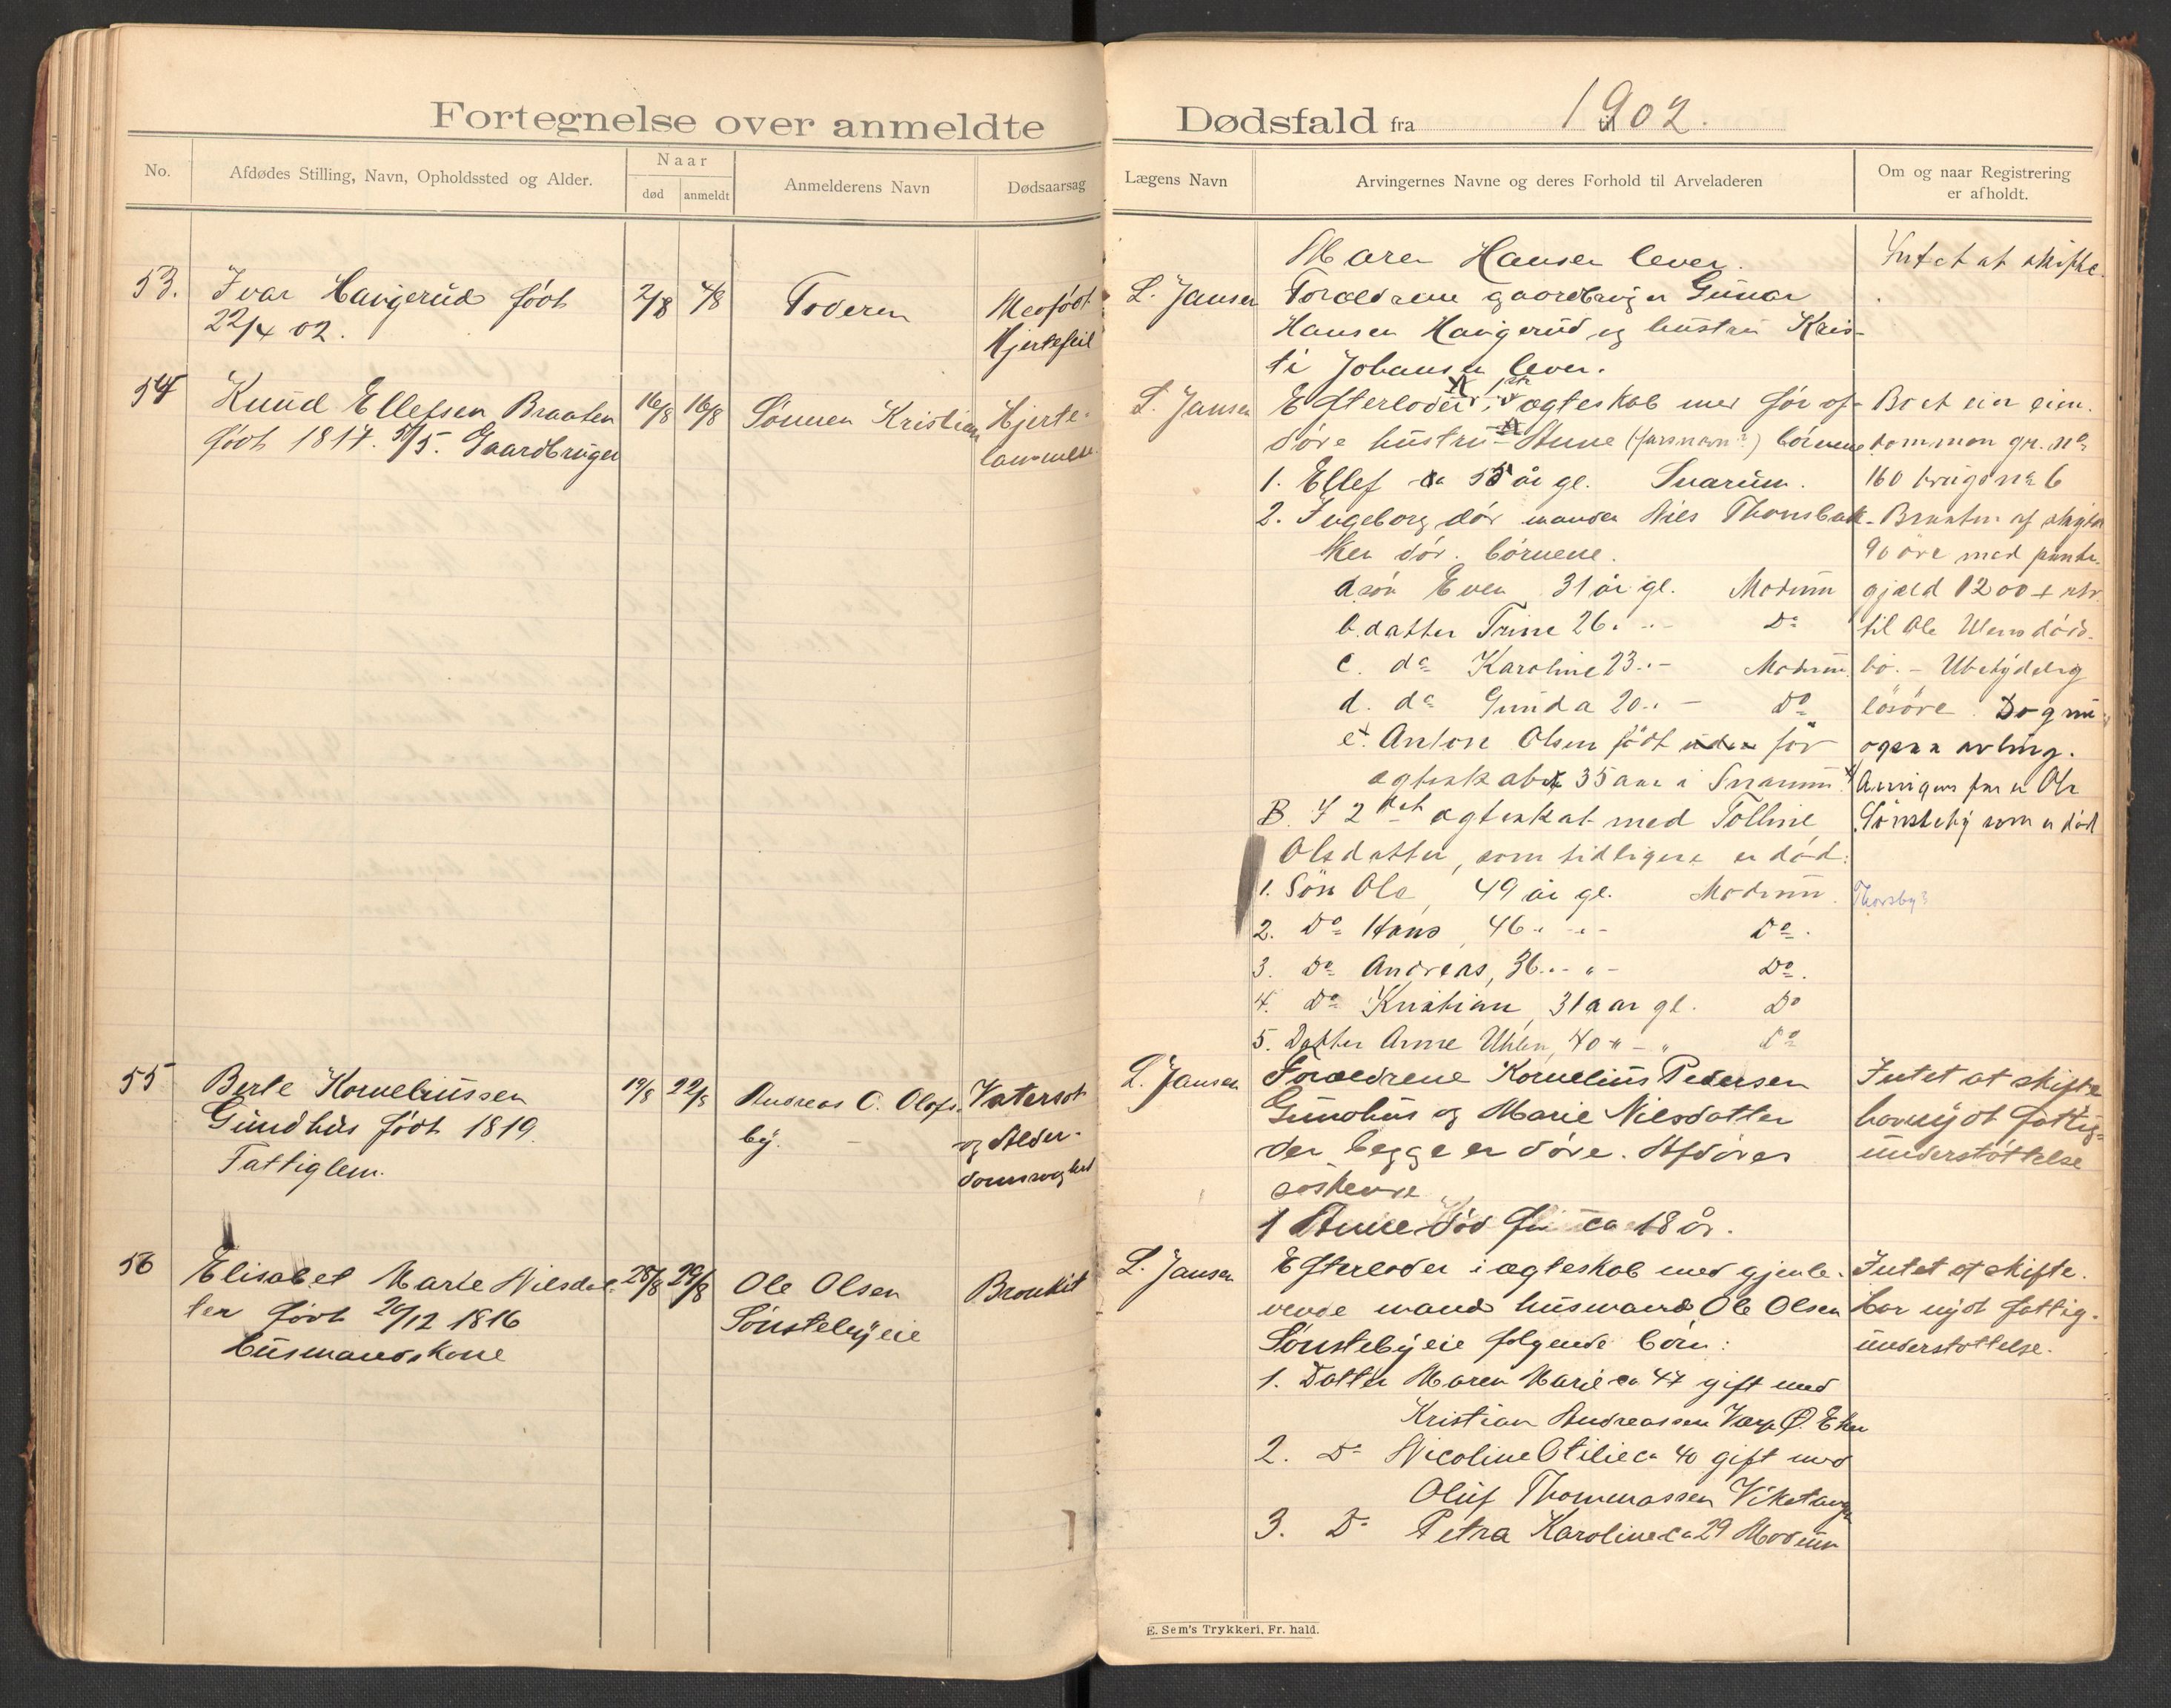 Fortegnelse over anmeldte
No.
Afdødes Stilling, Navn, Opholdssted og Alder.
Naar
død
anmeldt
Anmelderens Navn
Dødsaarsag
53.
Ivar Haugerud født
22/4 02.
2/8
4/8
Faderen
Medfødt
Hjertefeil
54
Knud Ellefsen Braaten
født 1817. 5/5. Gaardbruger
16/8
16/8
Sønnen Kristian
Hjerte-
lammelse.
55
Berte Korneliussen
Gundhus født 1819.
Fattiglem.
19/8
22/8
Andreas C. Olafs-
by.
Vatersot
og Alder-
domssvaghed
56
Elisabet Marie Nilsdat-
ter født 26/12 1816
Husmandskone
28/8
29/8
Ole Olsen
Sønstebyeie
Bronkit
Dødsfald fra til
1902.
Lægens Navn
Arvingernes Navne og deres Forhold til Arveladeren
Om og naar Registrering
er afholdt.
Maren Hansen lever.
Intet at skifte.
L. Jansen
Forældrene gaardbruger Gunar
Hansen Haugerud og hustru Kris-
ti Johansen lever.
L. Jansen
Efterlader i ægteskab med før af-
døde hustru Anne (farsnavn?) børnene
1. Ellef ca 55 år gl. Snarum.
2. Ingeborg død manden Nils Thonsbak-
ken død. børnene.
a. søn Even 31 år gl. Modum
b. datter Trine 26 " - Do
c. do Karoline 23 " - Modum.
d. do Gunda 20 " - Do
e. Anton Olsen født uden før
ægteskabet 35 aar i Snarum
B. I 2det ægteskab med Tolline
Olsdatter, som tidligere er død:
1. Søn Ole, 49 år gl. Modum.
2. Do Hans, 46 " - " - Do.
3. Do Andreas, 36 " - " - Do.
4. Do Kristian, 31 aar gl. Do
5. Datter Anne Uhlen, 40 " - " Do
Boet eier eien-
dommen gr. No
160 brugs No 6
Braaten af skyld
90 øre med pante-
gjæld 1200 +
til Ole Ulens døds-
bo. - Ubetydelig
løsøre. Dog
avling.
Arvingens far er Ole
Sønsteby som er død
Thorsby?
L. Jansen
Forældrene Kornelius Pedersen
Gundhus og Marie Nilsdatter
der begge er døde. Afdødes
søskende
1 Anne død for ca 18 år.
Intet at skifte
har nydt fattig-
understøttelse
L. Jansen
Efterlader i ægteskab med gjenle-
vende mand husmand Ole Olsen
Sønstebyeie følgende børn:
1. Datter Maren Marie ca 47 gift med
Kristian Andreassen Varp Ø. Eker
2. Do Nicoline Otilie ca 40 gift med
Oluf Thommassen
3. Do Petra Karoline ca 29 Modum
Intet at skifte.
har nydt fattig-
understøttelse.
E. Sem's Trykkeri, Fr. hald.